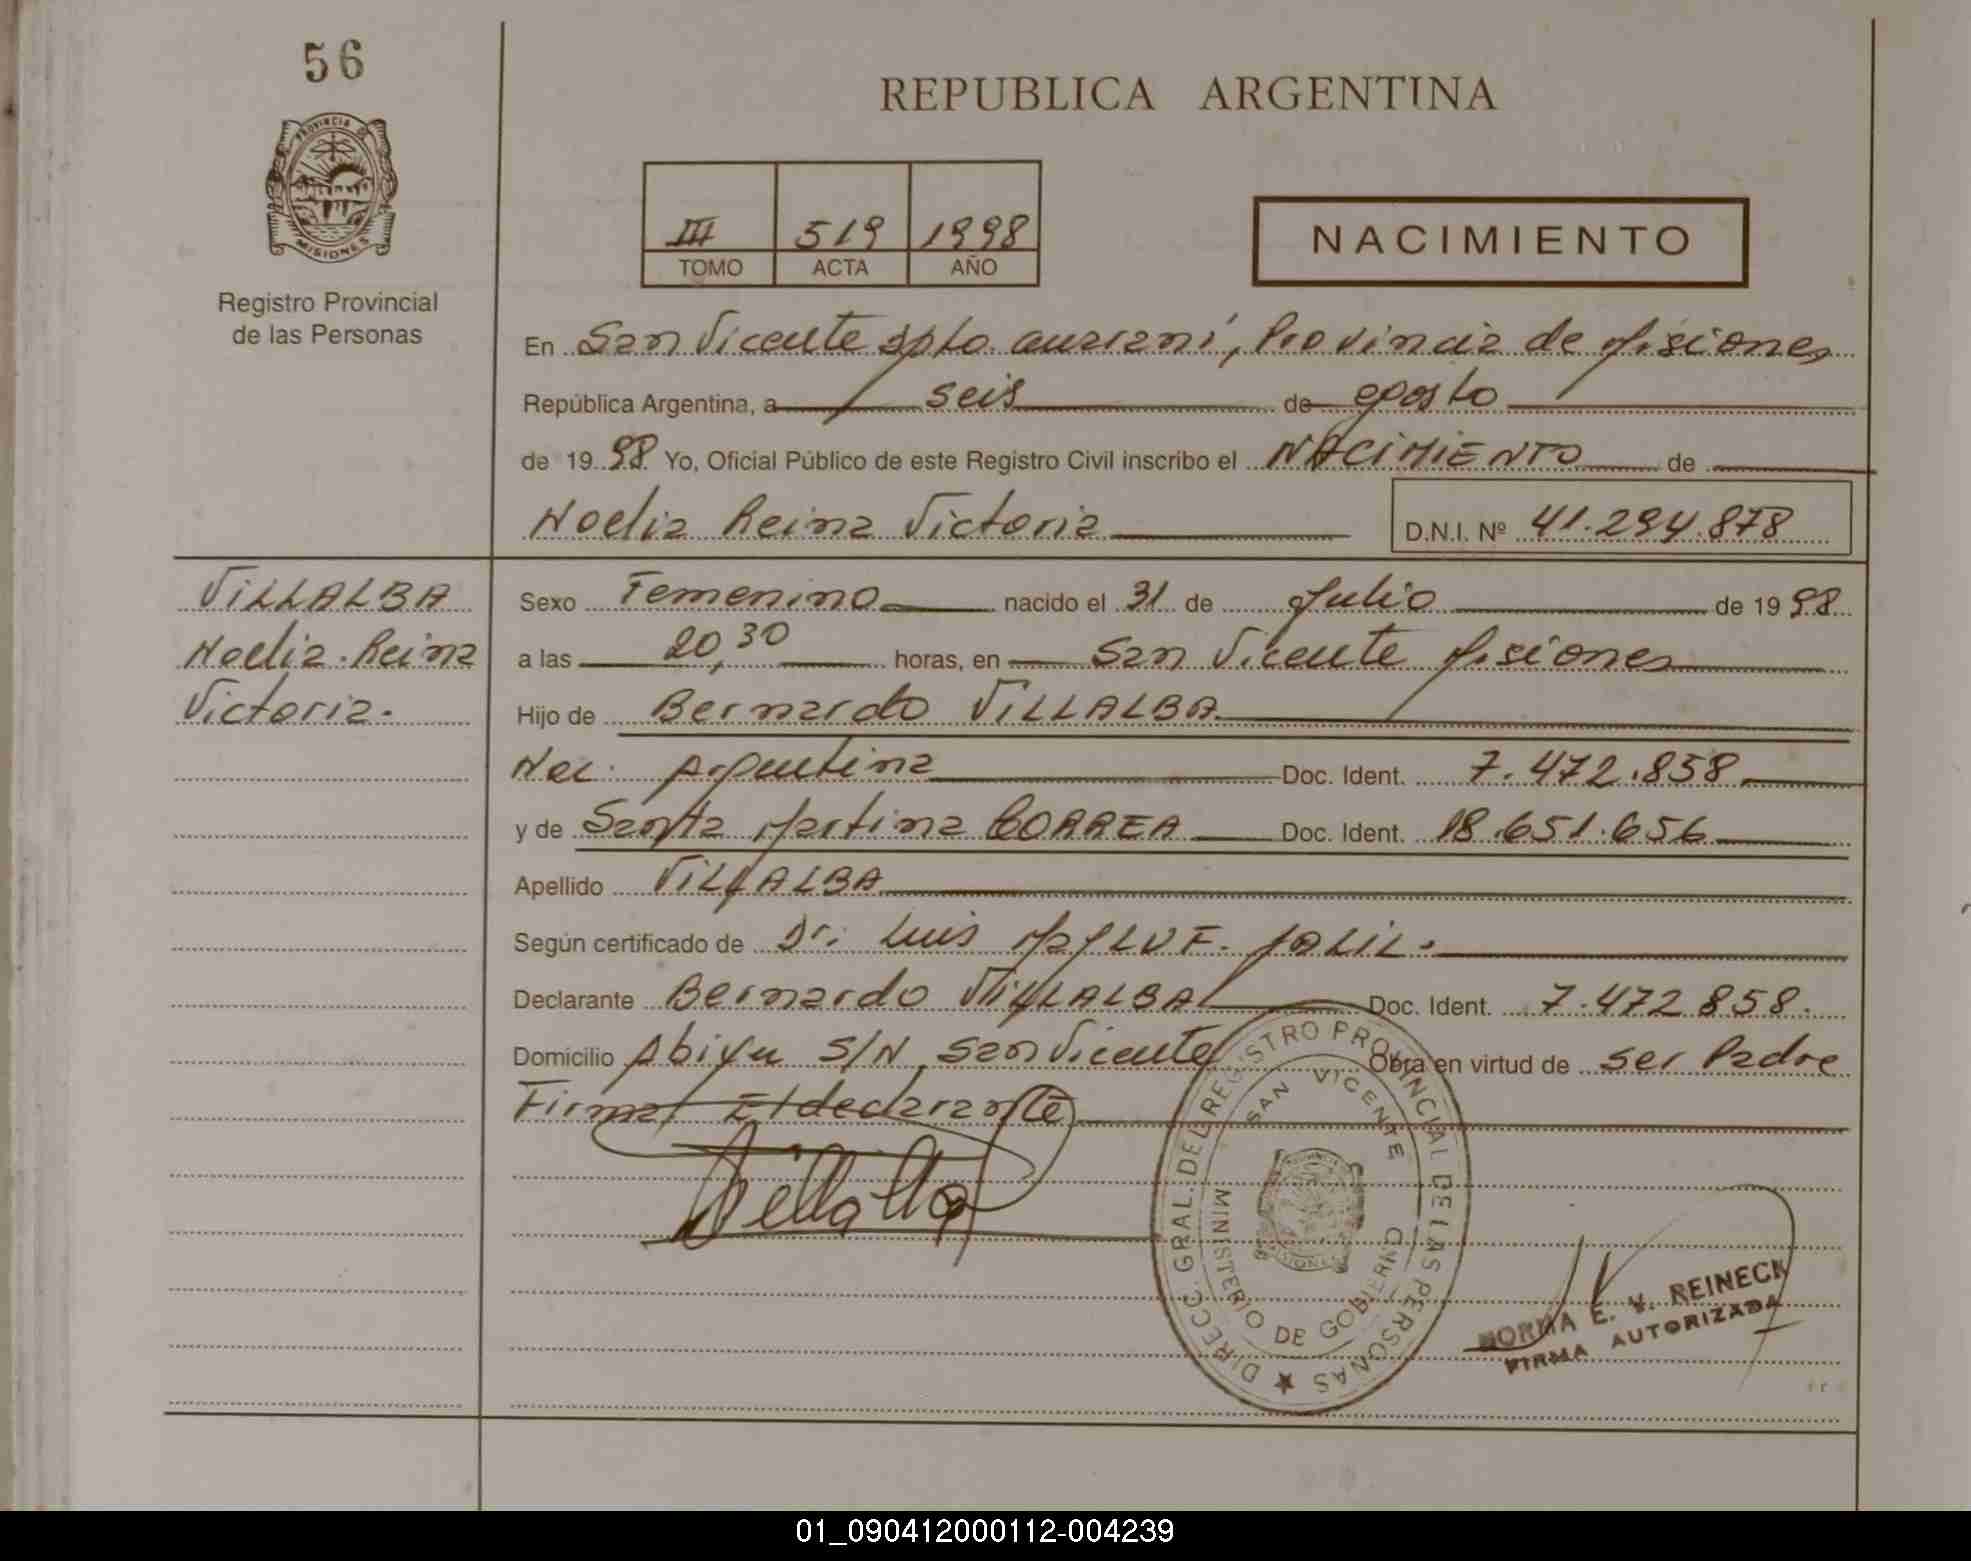 56
REPUBLICA ARGENTINA
PROVINCIA DE
MISIONES
Registro Provincial
de las Personas
III 519 1998
TOMO ACTA AÑO
NACIMIENTO
En San Vicente Dpto. Guaraní, Provincia de Misiones
República Argentina, a seis de agosto
de 1998 Yo, Oficial Público de este Registro Civil inscribo el NACIMIENTO de
Noelia Reina Victoria D.N.I. Nº 41.294.878
VILLALBA
Noelia Reina
Victoria.
Sexo Femenino nacido el 31 de Julio de 1998
a las 20,30 horas, en San Vicente Misiones
Hijo de Bernardo VILLALBA
Nac. Argentina Doc. Ident. 7.472.858
y de Santa Martina CORREA Doc. Ident. 18.651.656
Apellido VILLALBA
Según certificado de Dr. Luis JALIL.
Declarante Bernardo VILLALBA Doc. Ident. 7.472.858.
Domicilio S/N San Vicente Obra en virtud de ser Padre
Firma El declarante
Villalba
DIRECC. GRAL. DEL REGISTRO PROVINCIAL DE LAS PERSONAS
SAN VICENTE
MINISTERIO DE GOBIERNO
NORMA E. V. REINECK
FIRMA AUTORIZADA
01_090412000112-004239